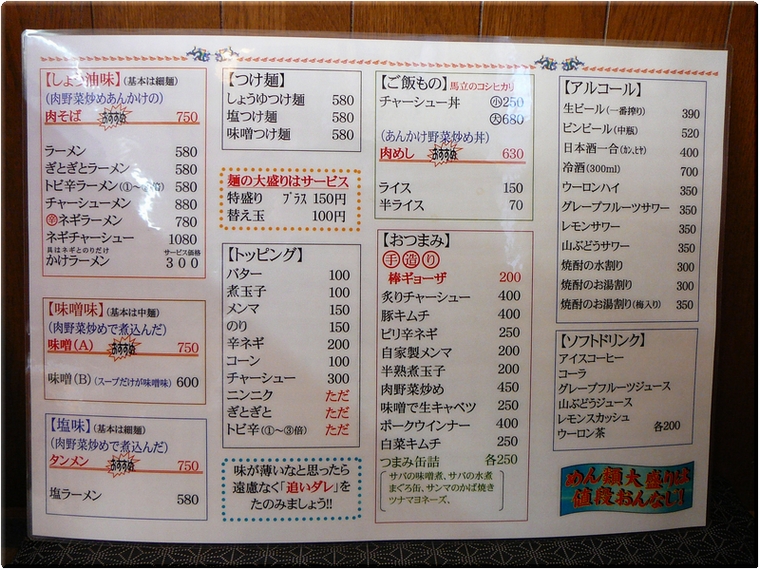 【しょう油味】(基本は細麺)
(肉野菜炒めあんかけの)
肉そば おすすめ 750
ラーメン 580
ぎとぎとラーメン 580
トビ辛ラーメン(①~③倍) 580
チャーシューメン 880
辛ネギラーメン 780
ネギチャーシュー 1080
具はネギとのりだけ サービス価格
かけラーメン 300
【味噌味】(基本は中麺)
(肉野菜炒めで煮込んだ)
味噌(A) おすすめ 750
味噌(B)(スープだけが味噌味) 600
【塩味】(基本は細麺)
(肉野菜炒めで煮込んだ)
タンメン おすすめ 750
塩ラーメン 580
【つけ麺】
しょうゆつけ麺 580
塩つけ麺 580
味噌つけ麺 580
麺の大盛りはサービス
特盛り プラス 150円
替え玉 100円
【トッピング】
バター 100
煮玉子 100
メンマ 150
のり 150
辛ネギ 200
コーン 100
チャーシュー 300
ニンニク ただ
ぎとぎと ただ
トビ辛(①~③倍) ただ
味が薄いなと思ったら
遠慮なく「追いダレ」を
たのみましょう!!
【ご飯もの】馬立のコシヒカリ
チャーシュー丼 小250
大680
(あんかけ野菜炒め丼)
肉めし おすすめ 630
ライス 150
半ライス 70
【おつまみ】
手造り
棒ギョーザ 200
炙りチャーシュー 400
豚キムチ 400
ピリ辛ネギ 250
自家製メンマ 200
半熟煮玉子 200
肉野菜炒め 450
味噌で生キャベツ 200
ポークウインナー 400
白菜キムチ 250
つまみ缶詰 各250
サバの味噌煮、サバの水煮
まぐろ缶、サンマのかば焼き
ツナマヨネーズ、
【アルコール】
生ビール(一番搾り) 390
ビンビール(中瓶) 520
日本酒一合(カン、ヒヤ) 400
冷酒(300ml) 700
ウーロンハイ 350
グレープフルーツサワー 350
レモンサワー 350
山ぶどうサワー 350
焼酎の水割り 300
焼酎のお湯割り 300
焼酎のお湯割り(梅入り) 350
【ソフトドリンク】
アイスコーヒー
コーラ
グレープフルーツジュース
山ぶどうジュース
レモンスカッシュ
ウーロン茶 各200
めん類大盛りは
値段おんなし!